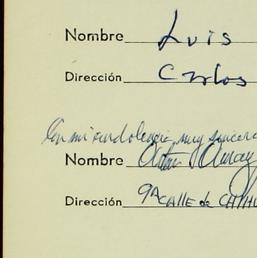 Nombre Luis
Dirección Carlos
Con mi condolencia, muy sincera
Nombre
Dirección 9A CALLE de